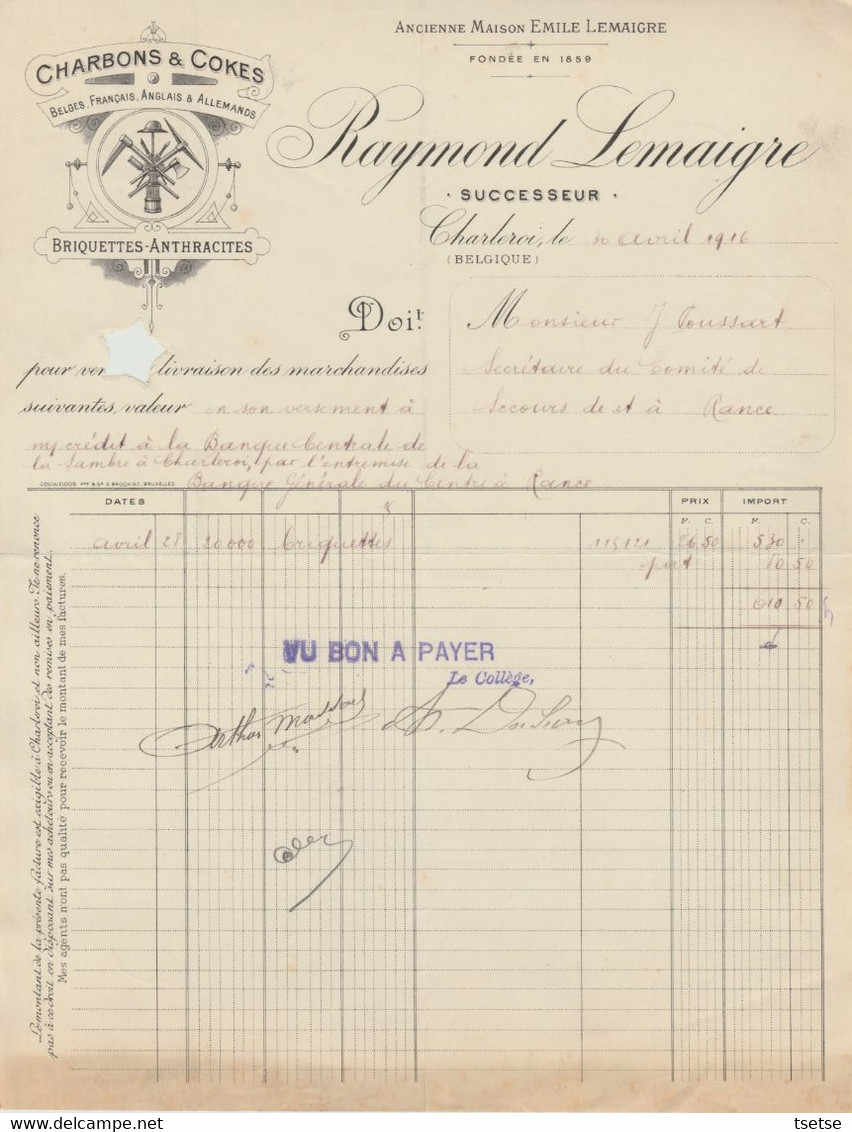 Ancienne Maison EMILE LEMAIGRE
FONDÉE EN 1859
CHARBONS & COKES
BELGES, FRANÇAIS, ANGLAIS & ALLEMANDS
BRIQUETTES-ANTHRACITES
Raymond Lemaigre
SUCCESSEUR
Charleroi, le 30 avril 1916
(BELGIQUE)
Doit
Monsieur J Poussart
Secrétaire du Comité de
Secours de et à Rance
pour ven livraison des marchandises
suivantes, valeur en son versement à
m/ crédit à la Banque Centrale de
la Sambre à Charleroi, par l'entremise de la
Banque Générale du Centre à Rance
DATES PRIX IMPORT
F. C. F. C.
avril 28 20000 briquettes 115121 26 50 530
port 80 50
610 50
VU BON A PAYER
Le Collège,
Arthur
Le montant de la présente facture est exigible à Charleroi et non ailleurs. Je ne renonce
pas à ce droit en disposant sur mes acheteurs ou en acceptant des remises en paiement.
Mes agents n'ont pas qualité pour recevoir le montant de mes factures.
tsetse